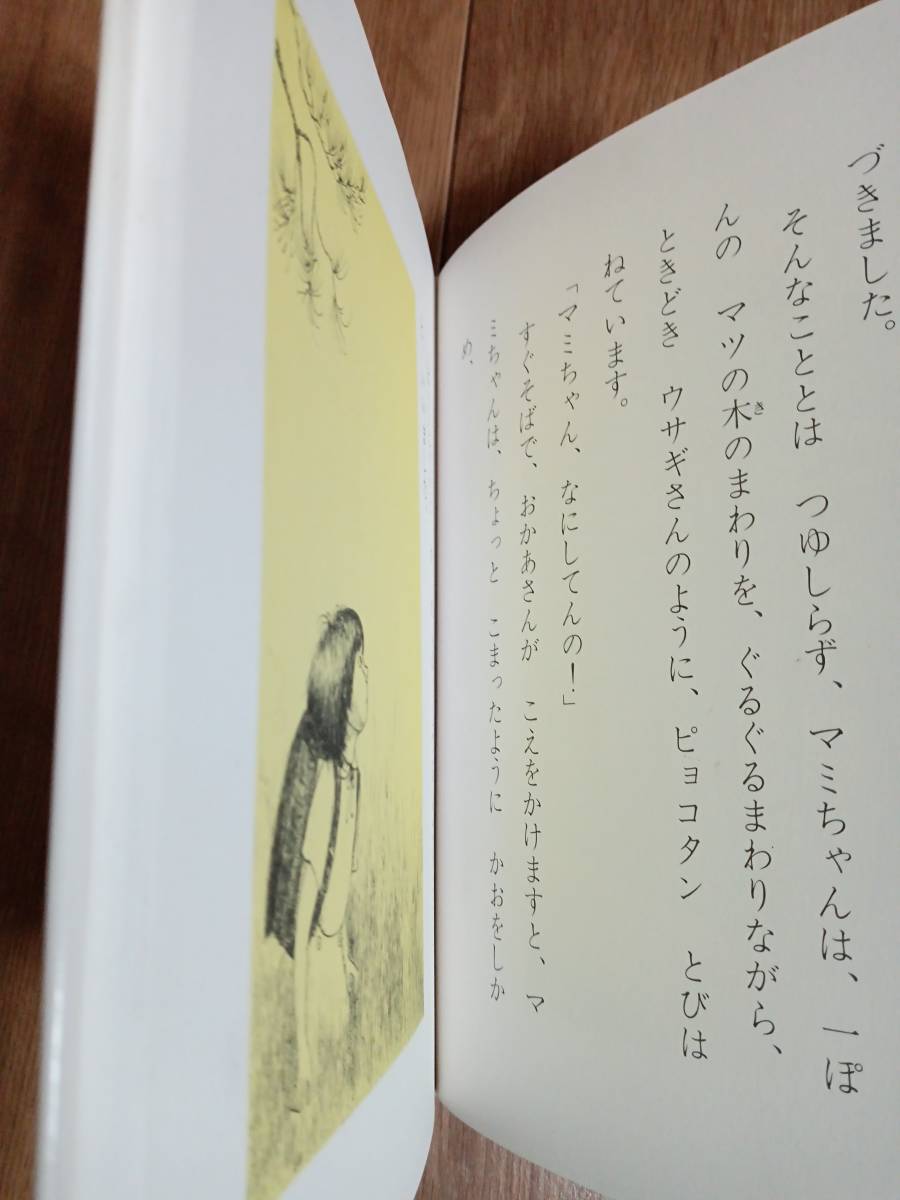 づきました。
そんなこととは つゆしらず、マミちゃんは、一ぽ
んの マツの木のまわりを、ぐるぐるまわりながら、
き
ときどき ウサギさんのように、ピョコタン とびは
ねています。
「マミちゃん、なにしてんの！」
すぐそばで、おかあさんが こえをかけますと、マ
ミちゃんは、ちょっと こまったように かおをしか
め、